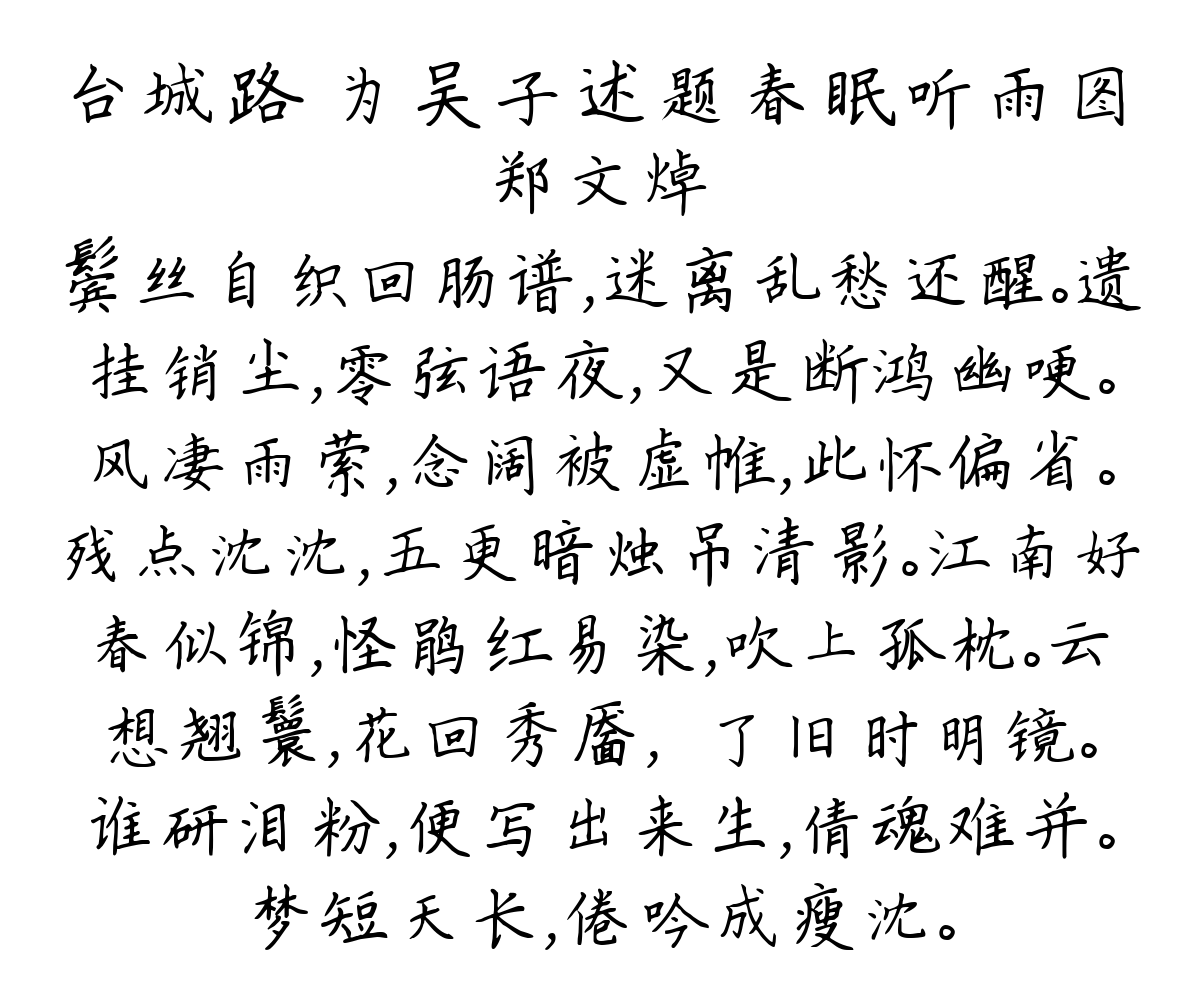 台城路 为吴子述题春眠听雨图
郑文焯
鬓丝自织回肠谱,迷离乱愁还醒。遗
挂销尘,零弦语夜,又是断鸿幽哽。
风凄雨萦,念阔被虚帷,此怀偏省。
残点沈沈,五更暗烛吊清影。江南好
春似锦,怪鹃红易染,吹上孤枕。云
想翘鬟,花回秀靥,了旧时明镜。
谁研泪粉,便写出来生,倩魂难并。
梦短天长,倦吟成瘦沈。